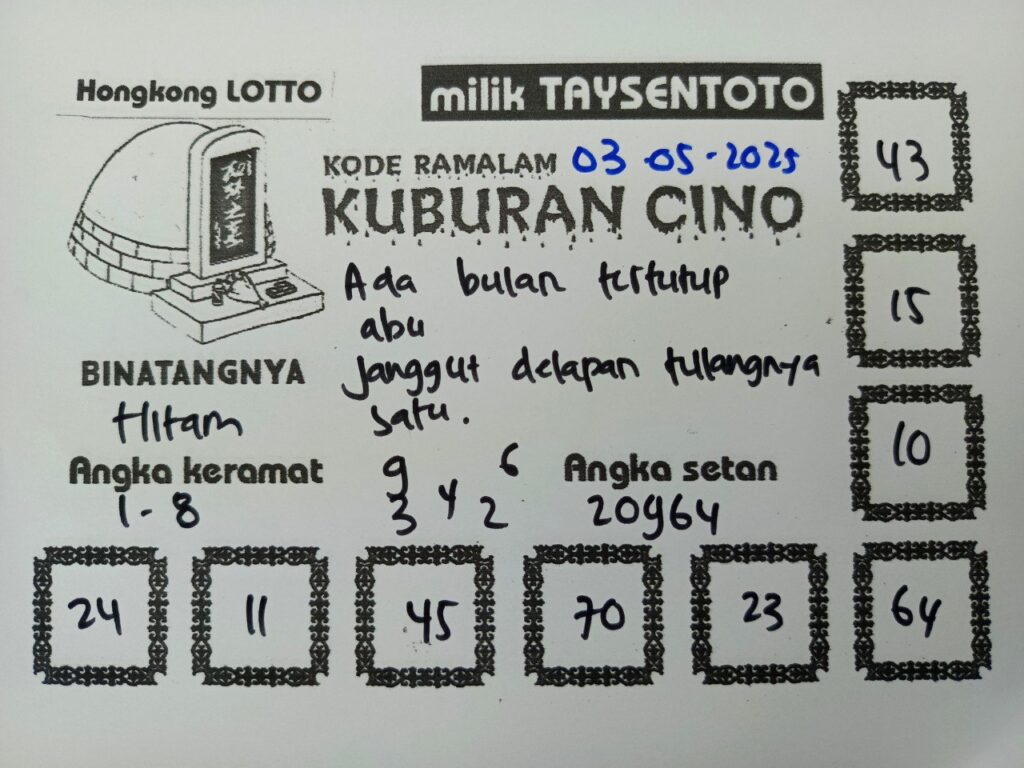 Hongkong LOTTO
milik TAYSENTOTO
KODE RAMALAM 03-05-2025
KUBURAN CINO
Ada bulan tertutup
abu
janggut delapan tulangnya
satu.
BINATANGNYA
Hitam
Angka keramat
1-8
9 6
3 4 2
Angka setan
20964
43
15
10
24 11 45 70 23 64